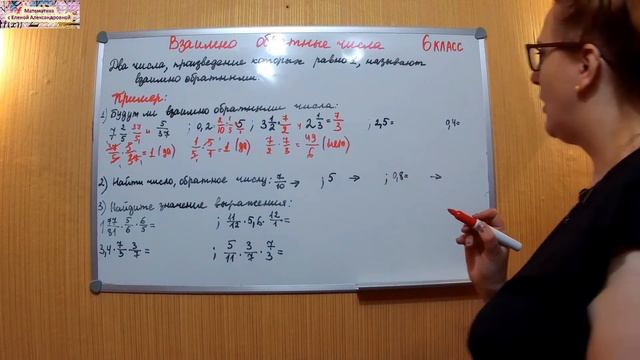 Математика
с Еленой Александровной
Взаимно обратные числа 6 класс
Два числа, произведение которых равно 1, называют
взаимно обратными.
Пример:
1) Будут ли взаимно обратными числа:
7 2/5 = 37/5 и 5/37 ; 0,2 = 2/10 = 1/5 и 5 ; 3 1/2 = 7/2 и 2 1/3 = 7/3 ; 2,5= 0,4=
37/5 · 5/37 = 1 (да) 1/5 · 5/1 = 1 (да) 7/2 · 7/3 = 49/6 (нет)
2) Найти число, обратное числу: 7/10 → ; 5 → ; 0,8= →
3) Найдите значение выражения:
1) 77/81 · 5/6 · 6/5 = ; 11/12 · 5,6 · 12/11 =
3,4 · 7/3 · 3/7 = ; 5/11 · 3/7 · 7/3 =